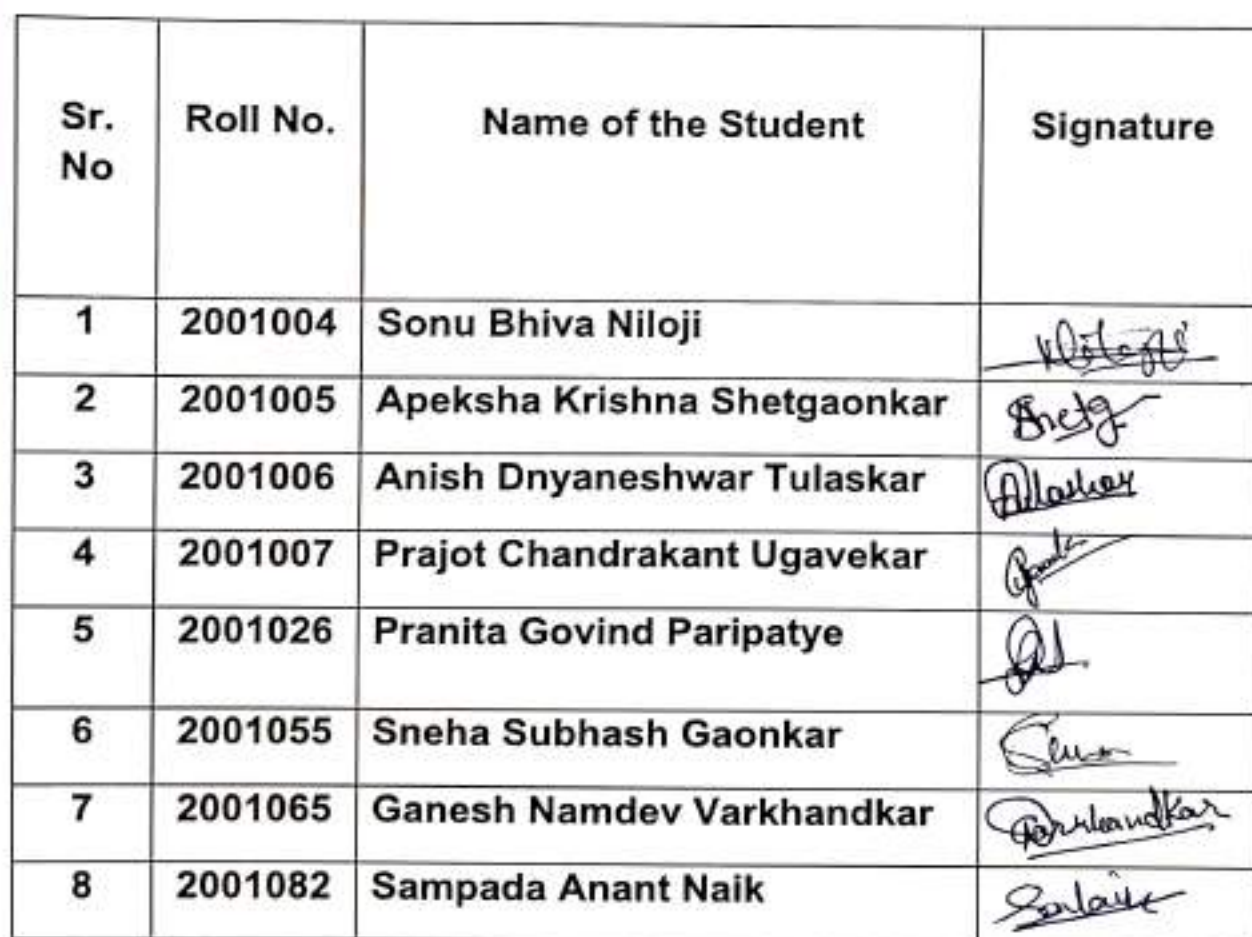 Sr. No Roll No. Name of the Student Signature
1 2001004 Sonu Bhiva Niloji
2 2001005 Apeksha Krishna Shetgaonkar Shetg
3 2001006 Anish Dnyaneshwar Tulaskar
4 2001007 Prajot Chandrakant Ugavekar
5 2001026 Pranita Govind Paripatye
6 2001055 Sneha Subhash Gaonkar
7 2001065 Ganesh Namdev Varkhandkar
8 2001082 Sampada Anant Naik